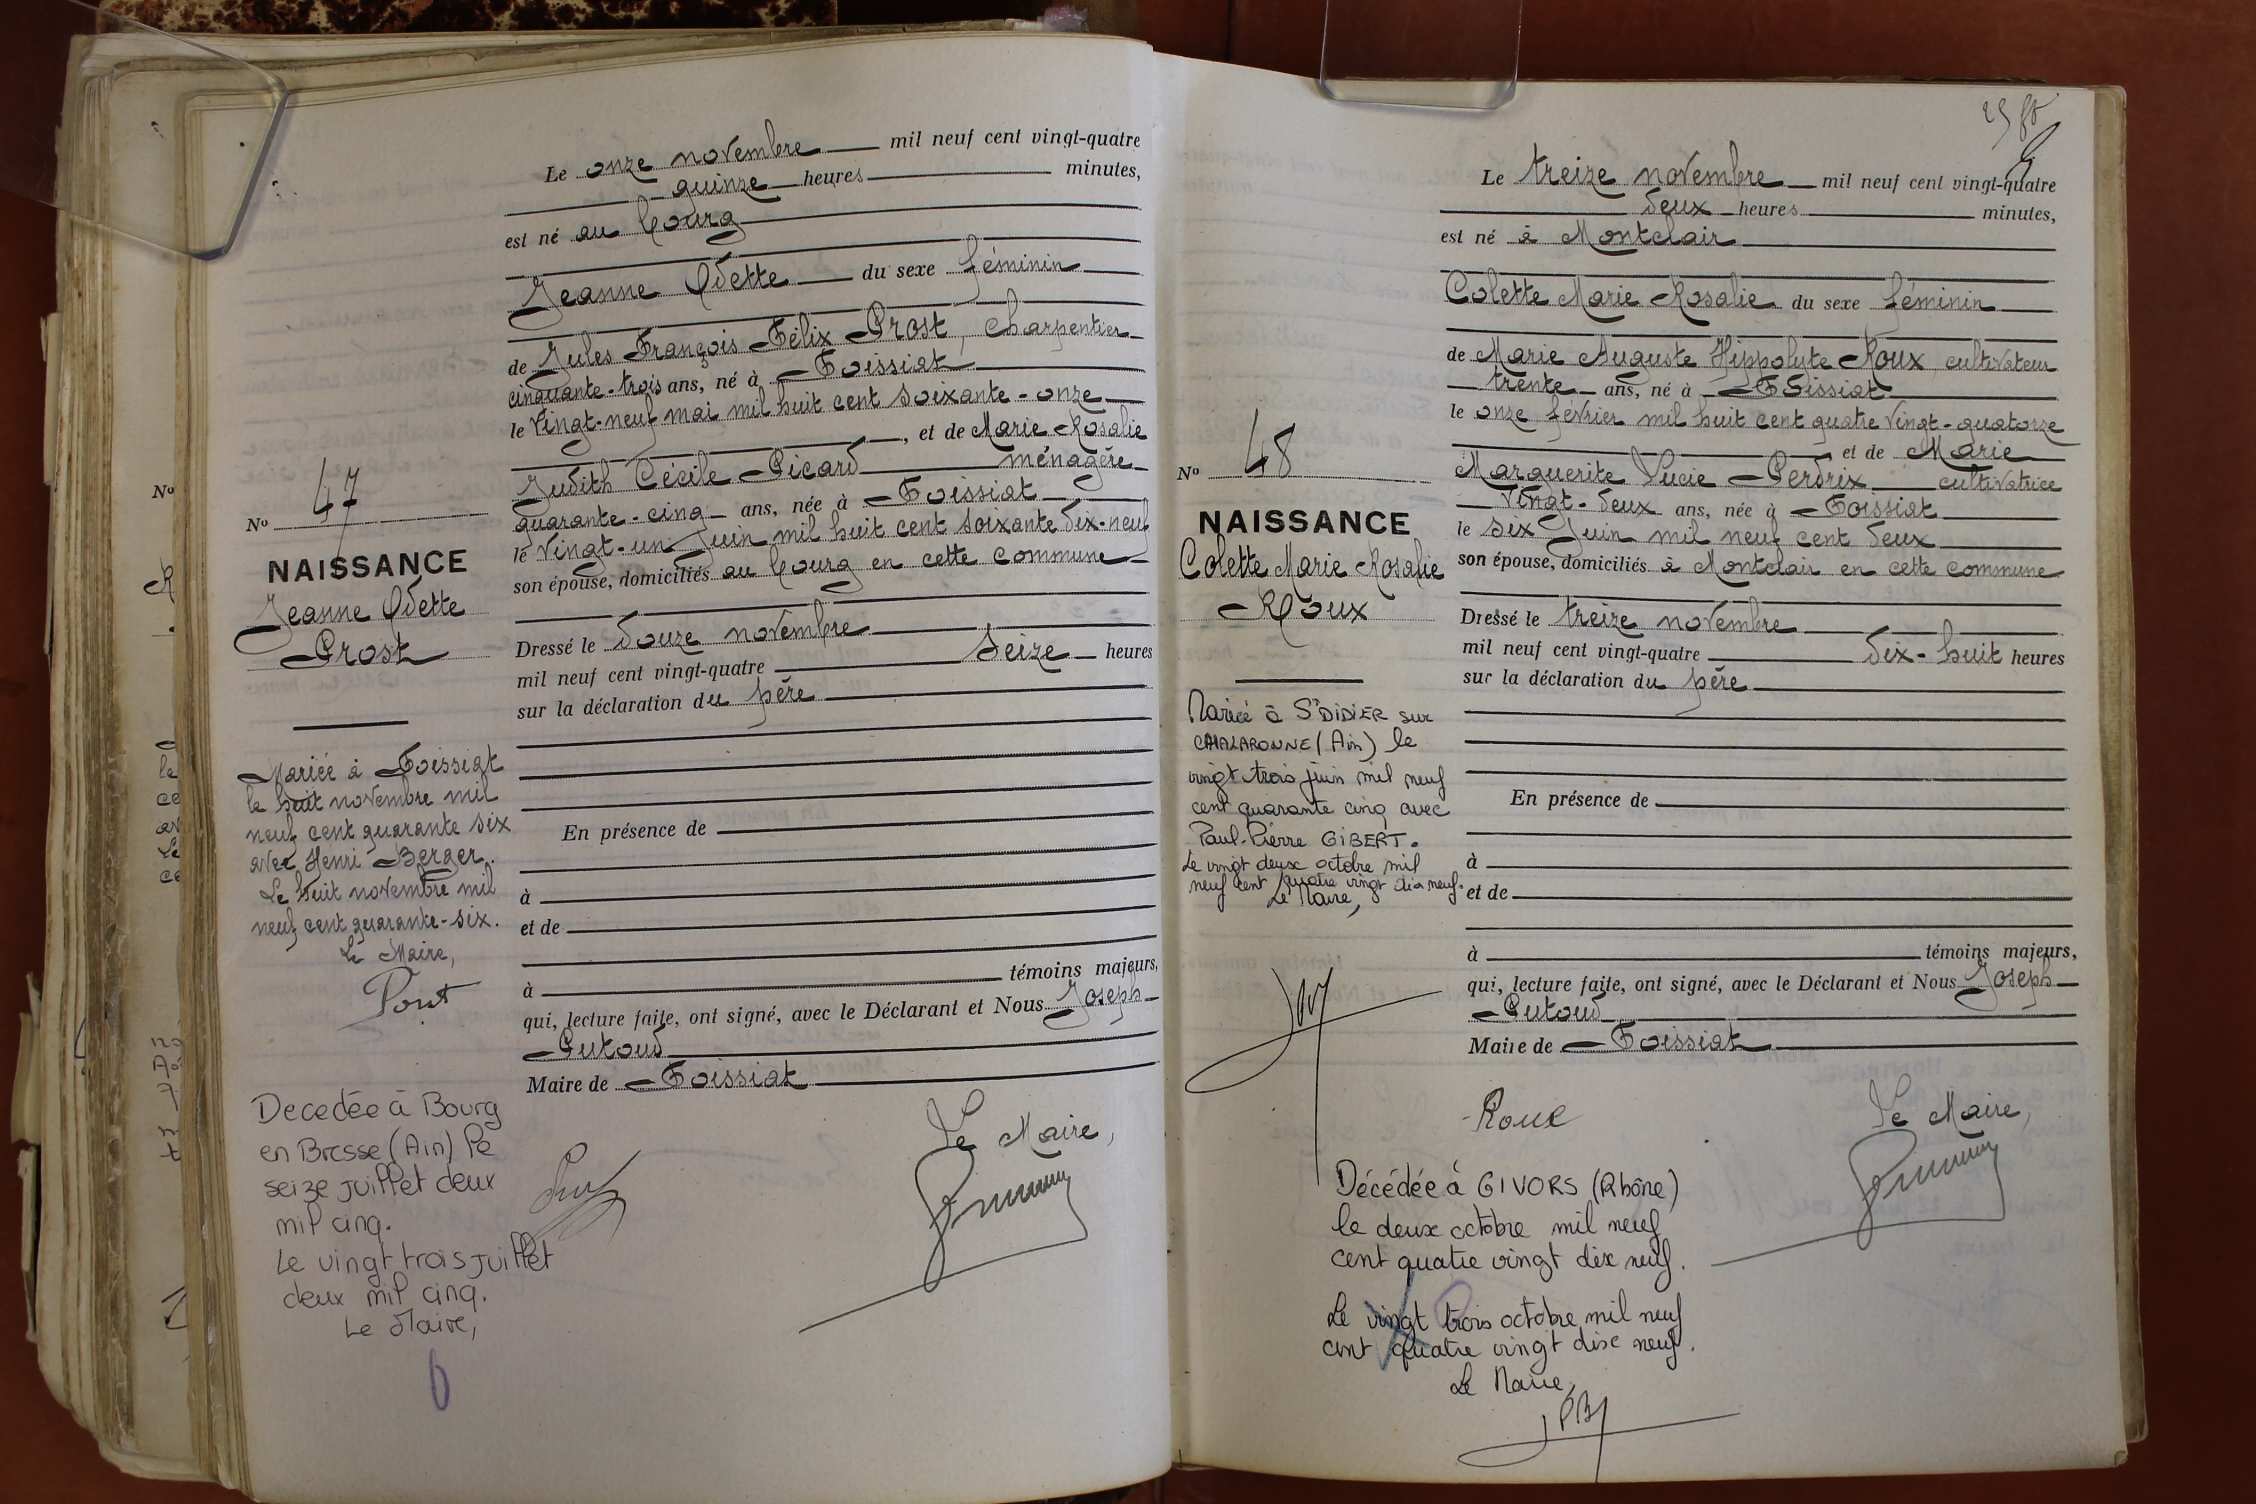 Le onze novembre mil neuf cent vingt-quatre
quinze heures minutes,
est né au bourg
Jeanne Odette du sexe féminin
de Jules François Félix Prost, charpentier
cinquante-trois ans, né à Foissiat
le vingt-neuf mai mil huit cent soixante-onze
, et de Marie Rosalie
Judith Cécile Picard ménagère
quarante-cinq ans, née à Foissiat
le vingt-un juin mil huit cent soixante dix-neuf
son épouse, domiciliés au bourg en cette commune
Dressé le douze novembre
mil neuf cent vingt-quatre seize heures
sur la déclaration du père
En présence de
à
et de
à témoins majeurs,
qui, lecture faite, ont signé, avec le Déclarant et Nous Joseph
Putoud
Maire de Foissiat
Le Maire,
No
No 47
NAISSANCE
Jeanne Odette
Prost
Mariée à Foissiat
le huit novembre mil
neuf cent quarante six
avec Henri Berger.
Le huit novembre mil
neuf cent quarante-six.
Le Maire,
Pont
Decedée à Bourg
en Bresse (Ain) le
seize juillet deux
mil cinq.
Le vingt trois juillet
deux mil cinq.
Le Maire,
Le treize novembre mil neuf cent vingt-quatre
deux heures minutes,
est né à Montclair
Colette Marie Rosalie du sexe féminin
de Marie Auguste Hippolyte Roux cultivateur
trente ans, né à Foissiat
le onze février mil huit cent quatre vingt-quatorze
et de Marie
Marguerite Lucie Perdrix cultivatrice
vingt-deux ans, née à Foissiat
le six juin mil neuf cent deux
son épouse, domiciliés à Montclair en cette commune
Dressé le treize novembre
mil neuf cent vingt-quatre dix-huit heures
sur la déclaration du père
En présence de
à
et de
à témoins majeurs,
qui, lecture faite, ont signé, avec le Déclarant et Nous Joseph
Putoud
Maire de Foissiat
Roux
Le Maire,
No 48
NAISSANCE
Colette Marie Rosalie
Roux
Mariée à St DIDIER sur
CHALARONNE (Ain) le
vingt trois juin mil neuf
cent quarante cinq avec
Paul-Pierre GIBERT.
Le vingt deux octobre mil
neuf cent quatre vingt dix neuf.
Le Maire,
Décédée à GIVORS (Rhône)
le deux octobre mil neuf
cent quatre vingt dix neuf.
Le vingt trois octobre mil neuf
cent quatre vingt dix neuf.
Le Maire,